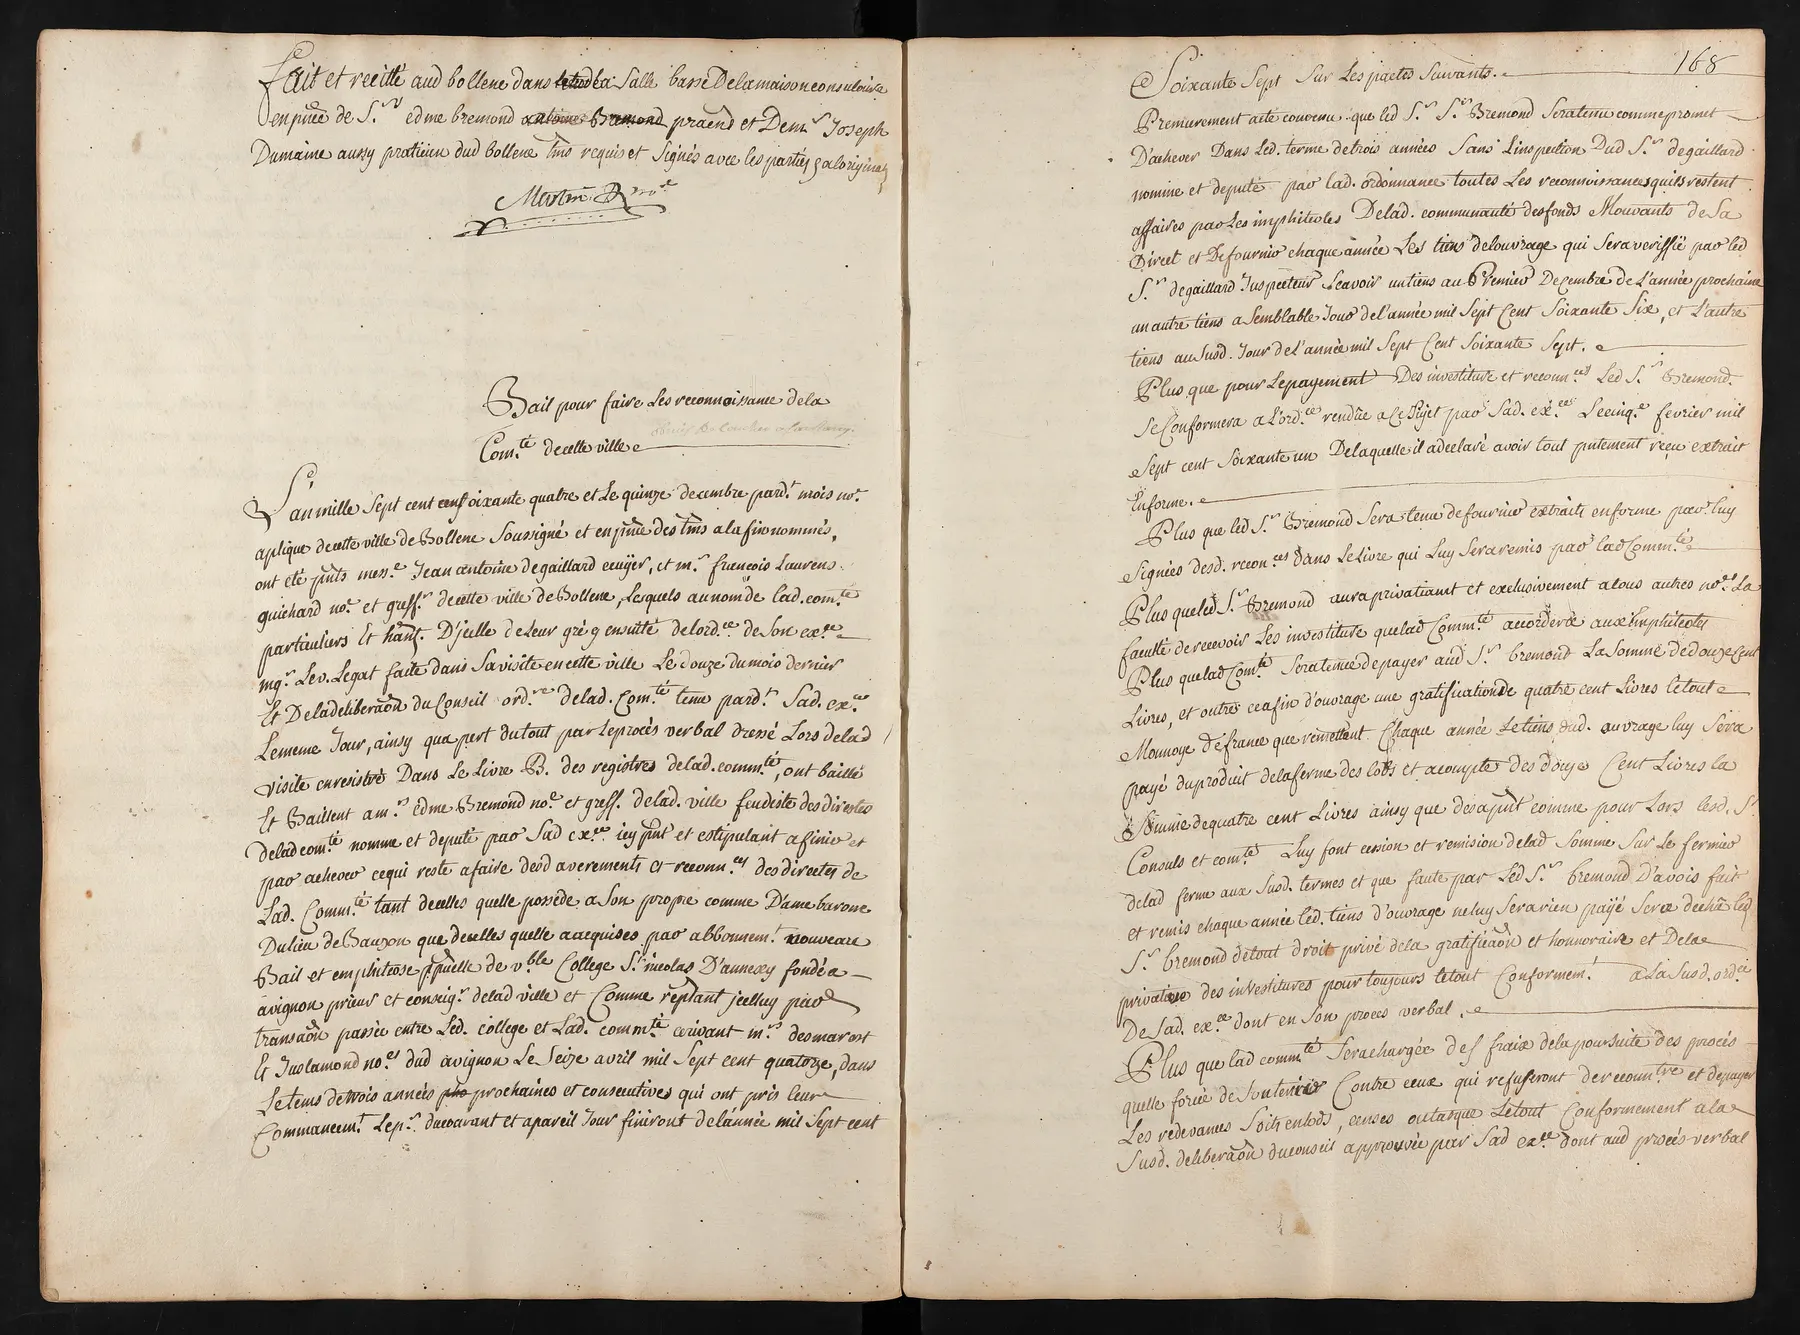 Fait et recitté aud bollene dans la Salle basse Delamaison consulaire
enpñce de S.r edme bremond praend et Dem.r Joseph
Dumaine aussy praticien dud bollene tms requis et Signés avec les parties
Martin no.e
Bail pour faire Les reconnoissance dela
Com.té decette ville
L'an mille Sept cent soixante quatre et Le quinze decembre pard.t mois no.e
aplique decette ville de Bollene Soussigné et enpñce des tms alafin nommés,
ont eté pñts mess.e Jean antoine degaillard ecuÿer, et m.r francois Laurens
guichard no.e et greff.r decette ville de Bollene, Lesquels au nom de Lad. com.té
particuliers Et hañt. D'jcelle deLeur gré en suitte delord.ce de Son ex.ce
mg.r Le v. Legat faite dans Sa visite encette ville Le douze du mois dernier
Et De la deliberaõn du Conseil ord.re delad. Com.té tenu pard.t Sad. ex.ce
Lememe Jour, ainsy qua pert du tout par Leprocès verbal dressé Lors delad
visite enregistré Dans Le Livre B. des registres delad. comm.té, ont baillé
Et Baillent a m.r edme Bremond no.e et greff. delad. ville feudiste des directes
delad com.té nommé et deputé par Sad ex.ce icy pñt et estipulant a finir et
par achever cequi reste afaire des averements et reconn.ces des directes de
Lad. Comm.té tant decelles quelle possède a Son propre comme Dame barone
Du lieu de Bauzon que decelles quelle a acquises par abbonnem.t nouveau
Bail et emphiteose ppetuelle de v.ble College S.t nicolas D'annexy fondé a
avignon prieur et conseig.r delad ville et Comme rep̃tant jcelluy par
transaõn passée entre Led. college et Lad. comm.té ecrivant m.rs desmarest
Et Juslamond no.es dud avignon Le Seize avril mil Sept cent quatorze, dans
Le tems de trois années prochaines et consecutives qui ont pris leur
Commancem.t Le p.r ducourant et apareil Jour finiront del'année mil Sept cent
168
Soixante Sept Sur Les pactes Suivants.
Premierement a eté convenu que led S.r Bremond Sera tenu comme promet
D'achever Dans Led. terme de trois années Sans L'inspection Dud S.r degaillard
nommé et deputé par lad. ordonnance toutes Les reconnoissances quils restent
affaires par Les imphiteotes Delad. communauté des fonds Mouvants de Sa
Direct et De fournir chaque année Les tiers de louvrage qui Sera veriffié par led
S.r degaillard Juspecteur Scavoir un tiers au Premier Decembre de L'année prochaine
un autre tiers a Semblable Jour de l'année mil Sept Cent Soixante Six, et L'autre
tiers au Susd. Jour de L'année mil Sept Cent Soixante Sept.
Plus que pour Lepayement Des investiture et reconn.ces Led S.r Bremond
Se Conformera a L'ord.ce rendue a Ce Sujet par Sad. ex.ce Le cinq.e fevrier mil
Sept cent Soixante un Delaquelle il a declaré avoir tout p̃ntement reçu extrait
En forme.
Plus que led S.r Bremond Sera tenu de fournir extraits en forme par luy
Signées desd. recon.ces dans Le Livre qui Luy Sera remis par lad Comm.té
Plus que led S.r Bremond aura privativement et exclusivement a tous autres no.es La
faculté de recevoir Les investiture que lad Comm.té accordera aux Emphiteotes
Plus que lad Com.té Sera tenue de payer aud S.r bremond La Somme de douze Cent
Livres, et outre ce a fin d'ouvrage une gratification de quatre cent Livres le tout
Monnoye de france que remettent Chaque année Le tiers dud. ouvrage luy Sera
payé du produit de la ferme des lots et acompte des douze Cent Livres la
Somme de quatre cent Livres ainsy que des apñt comme pour Lors lesd. S.r
Consuls et com.té Luy font cession et remision de lad Somme Sur Le fermier
delad ferme aux Susd. termes et que faute par Led S.r bremond D'avoir fait
et remis chaque année led. tiers d'ouvrage ne luy Sera rien payé Sera dechû led
S.r bremond de tout droit privé de la gratificaõn et honnoraire et De la
privation des investitures pour toujours le tout Conformem.t a La Susd. ord.ce
De Sad. ex.ce dont en Son proces verbal.
Plus que lad comm.té Sera chargée des fraix de la poursuite des procés
quelle forcée de Soutenir Contre ceux qui refuseront de reconn.tre et de payer
Les redevances Soit en lods, censes ou tasque Le tout Conformement a la
Susd. deliberaõn du conseil approuvée par Sad ex.ce dont aud procés verbal